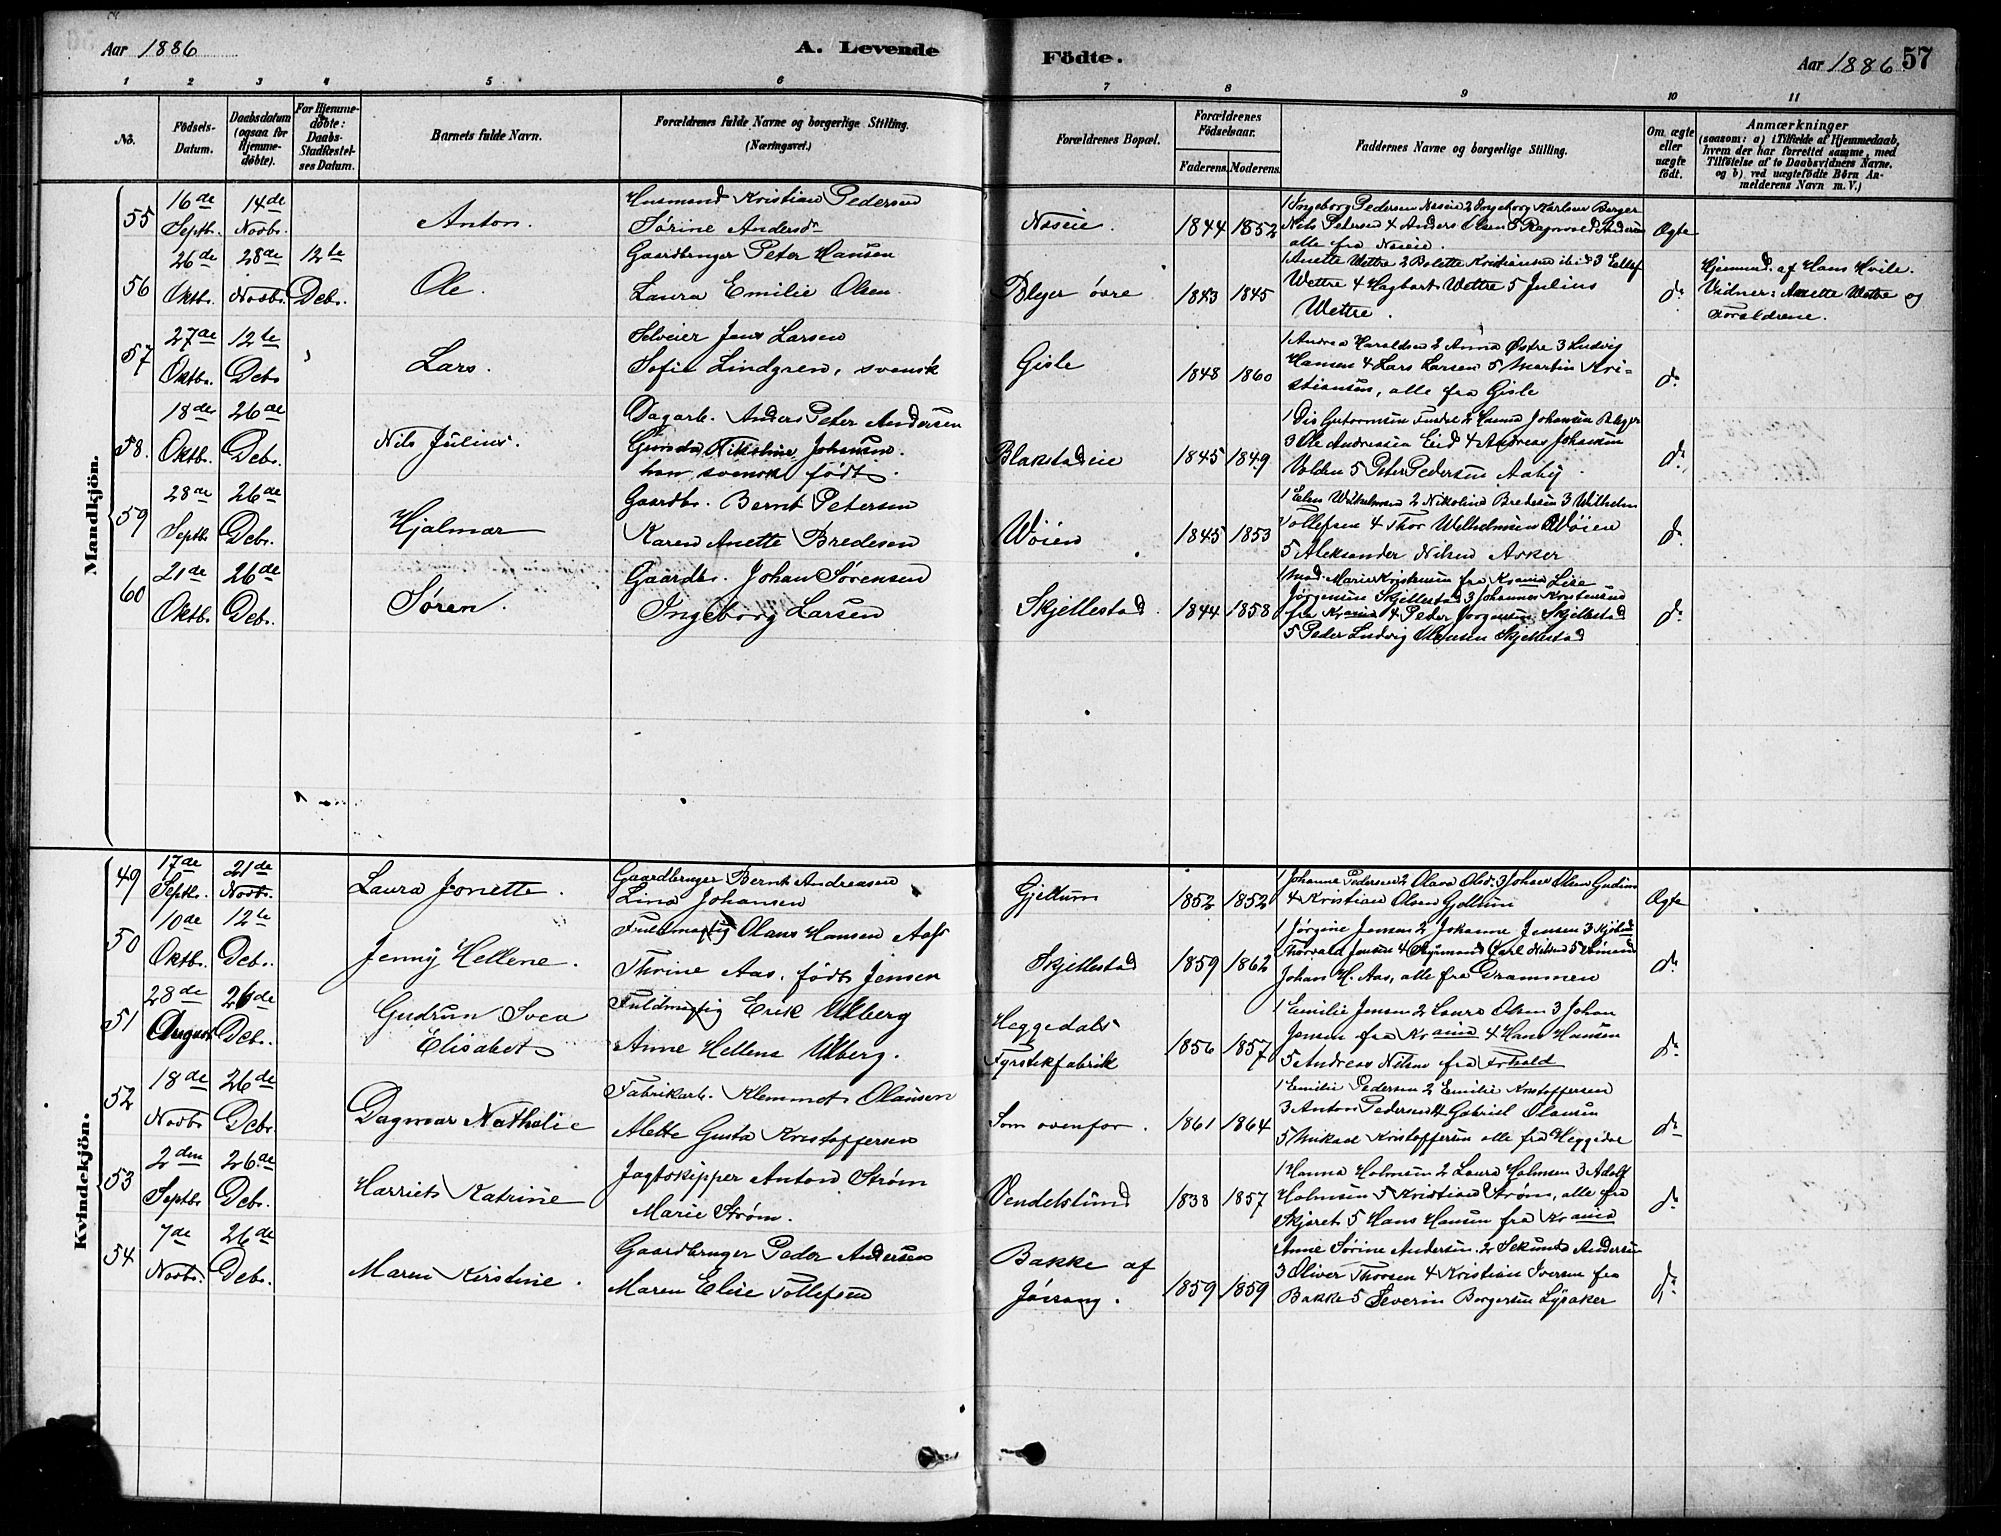 Aar 1886
A. Levende
Födte.
Aar 1886
57
1 2 3 4 5 6 7 8 9 10 11
No.
Födsels-Datum.
Daabsdatum (ogsaa for Hjemme-döbte).
For Hjemme-döbte: Daabs-Stadfæstel-ses Datum.
Barnets fulde Navn.
Forældrenes fulde Navne og borgerlige Stilling. (Næringsvei.)
Forældrenes Bopæl.
Forældrenes Födselsaar.
Faderens. Moderens.
Faddernes Navne og borgerlige Stilling.
Om ægte eller uægte födt.
Anmærkninger
(saasom: a) i Tilfælde af Hjemmedaab,
hvem der har forrettet samme, med
Tilföielse af to Daabsvidners Navne,
og b) ved uægtefödte Börn An-
melderens Navn m. V.)
Mandkjön.
55
16de Septb.
14de Novbr.
Anton.
Husmand Kristian Pedersen
Sørine Andersdr
Næseie.
1844 1852
1 Ingeborg Pedersen Næseie 2 Ingeborg Karlsen Berger
Nils Pedersen 4 Anders Olsen 5 Ragnvald Andersen
alle fra Næseie.
Ægte
56
26de Oktb.
28de Novbr.
12te Debr.
Ole.
Gaardbruger Peter Hansen
Laura Emilie Olsen.
Bleger øvre
1843 1845
1 Anette Wettre 2 Bolette Kristiansen ibid 3 Ellef
Wettre 4 Hagbart Wettre 5 Julius
Wettre.
do
Hjemmed. af Hans Hvile.
Vidner: Anette Wettre og
Forældrene.
57
27de Oktbr.
12te Debr
Lars.
Selveier Jens Larsen
Sofie Lindgren, svensk
Gisle
1848 1860
1 Andrea Haraldsen 2 Anna Østre 3 Ludvig
Hansen 4 Lars Larsen 5 Martin Kri-
stiansen, alle fra Gisle
do
58.
18de Oktbr.
26de Debr.
Nils Julius.
Dagarb. Anders Peter Andersen
Gunda Nikoline Johansen.
han svensk født.
Blakstadeie
1845 1849
3 Ole Andreasen Eid 4 Andreas Johansen
Volden 5 Peter Pedersen Aaby.
do
59
28de Septb.
26de Debr.
Hjalmar
Gaardbr. Bernt Petersen
Karen Anette Bredesen
Wøien
1845 1853
1 Elen Wilhelmsen 2 Nikoline Bredesen 3 Wilhelm
Tollefsen 4 Thor Wilhelmsen Wøien
5 Aleksander Nilsen Asker
do
60
21de Oktbr.
26de Debr.
Søren.
Gaardbr. Johan Sørensen
Ingeborg Larsen
Skjellestad.
1844 1858
1 Mad. Marie Kristensen fra Krania Lise
Jørgensen Skjellestad 3 Johannes Kristensen
fra Krania 4 Peder Jørgensen Skjellestad
5 Peder Ludvig Skjellestad
do
Kvindekjön.
49
17de Septb.
21de Novbr.
Laura Jonette.
Gaardbruger Bernt Andreasen
Lina Johansen
Gjellum
1852 1852
1 Johanne Pedersen 2 Olava Olsd. 3 Johan Olsen
4 Kristian Olsen Gjellum
Ægte
50
10de Oktbr.
12te Debr.
Jenny Hellene.
Fuldmægtig Olaus Hansen Aas
Thrine Aas, født Jensen
Skjellestad
1859 1862
1 Jørgine Jensen 2 Johanne Jensen
Thorvald Jensen 4 Styrmand Carl Nilsen 5 Sömand
Johan H. Aas, alle fra Drammen
do
51
28de August
26de Debr.
Gudrun Svea
Elisabet
Fuldmægtig Erik Ulberg
Anne Hellene Ulberg.
Heggedals
Fyrstikfabrik
1856 1857
1 Emilie Jensen 2 Laura Olsen 3 Johan
Jensen fra Krania 4 Hans Hansen
5 Andreas Nilsen fra
do
52
18de Novbr
26de Debr.
Dagmar Nathalie
Fabrikarb. Klemmet Olausen
Alette Gusta Kristoffersen
Som ovenfor.
1861 1864
1 Emilie Pedersen 2 Emilie Kristoffersen
3 Anton Pedersen 4 Gabriel Olausen
5 Mikael Kristoffersen alle fra Heggedal
do
53
2den Septbr
26de Debr.
Harriet Katrine
Jagtskipper Anton Strøm
Marie Strøm.
Vendelslund
1838 1857
1 Hanna Holmsen 2 Laura Holmsen 3 Adolf
Holmsen 5 Kristian Strøm, alle fra
Skjæret 5 Hans Hansen fra Krania
do
54
7de Novbr.
26de Debr.
Maren Kirstine.
Gaardbruger Peder Andersen
Maren Elise Tollefsen
Bakke af
1859 1859
Anne Sørine Andersen 2 Andersen
3 Oliver Thoresen 4 Kristian Iversen fra
Bakke 5 Severin Borgersen Lysaker
do